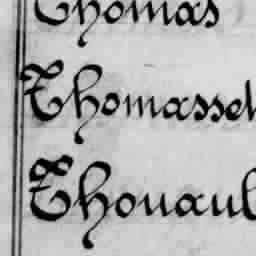 Thomas
Thomasset
Thouaul